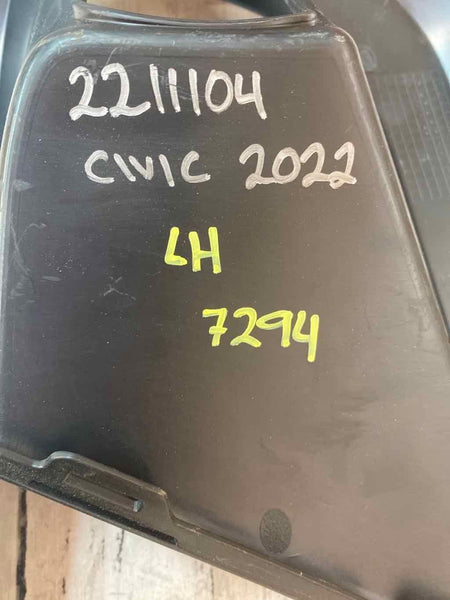 2211104
CIVIC 2022
LH
7294